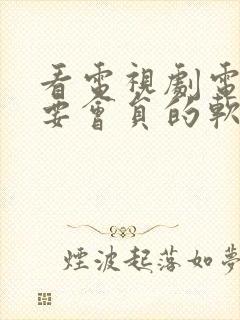 看電視劇電
要會員的軟
煙波起落如夢